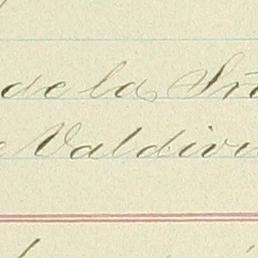 de la Sra
Valdivi